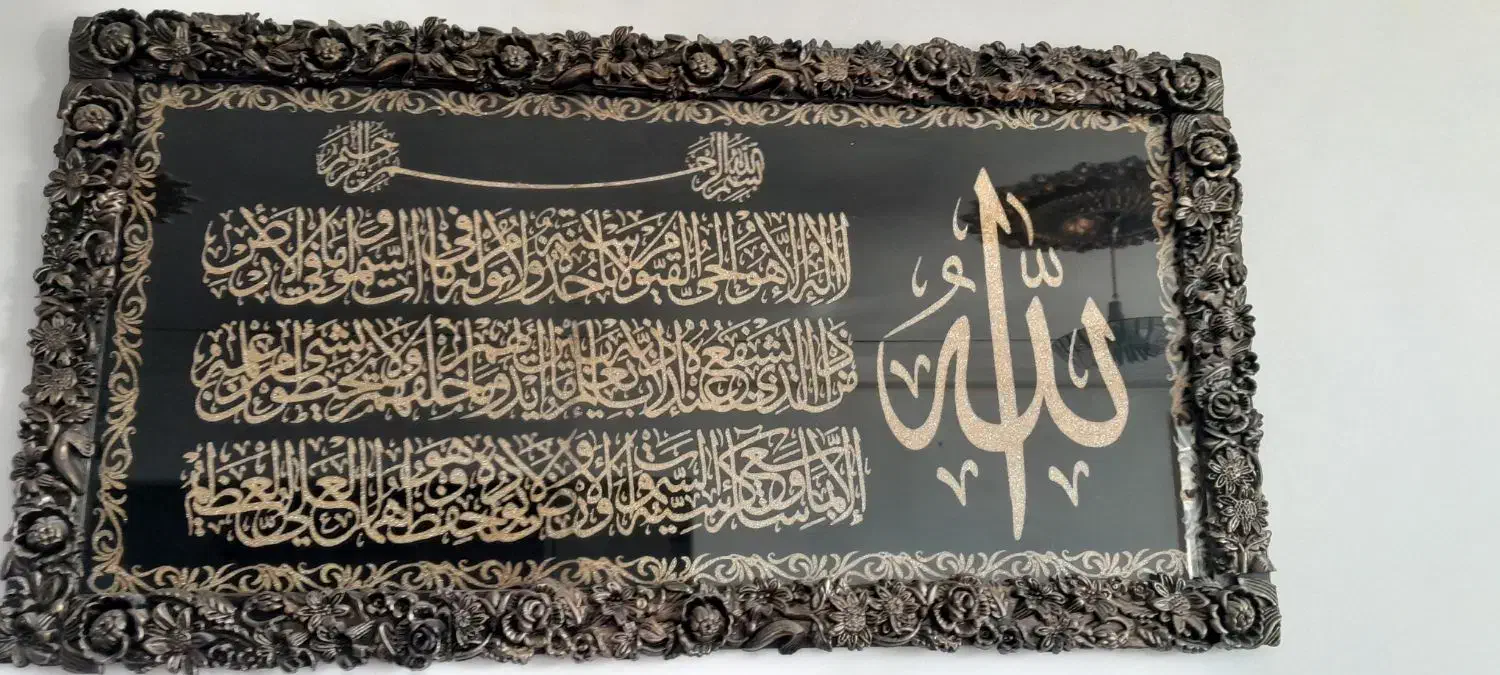 بسم الله الرحمن الرحيم
الله لا إله إلا هو الحي القيوم لا تأخذه سنة ولا نوم له ما في السموات وما في الأرض
من ذا الذي يشفع عنده إلا بإذنه يعلم ما بين أيديهم وما خلفهم ولا يحيطون بشيء من علمه
إلا بما شاء وسع كرسيه السموات والأرض ولا يؤده حفظهما وهو العلي العظيم
الله